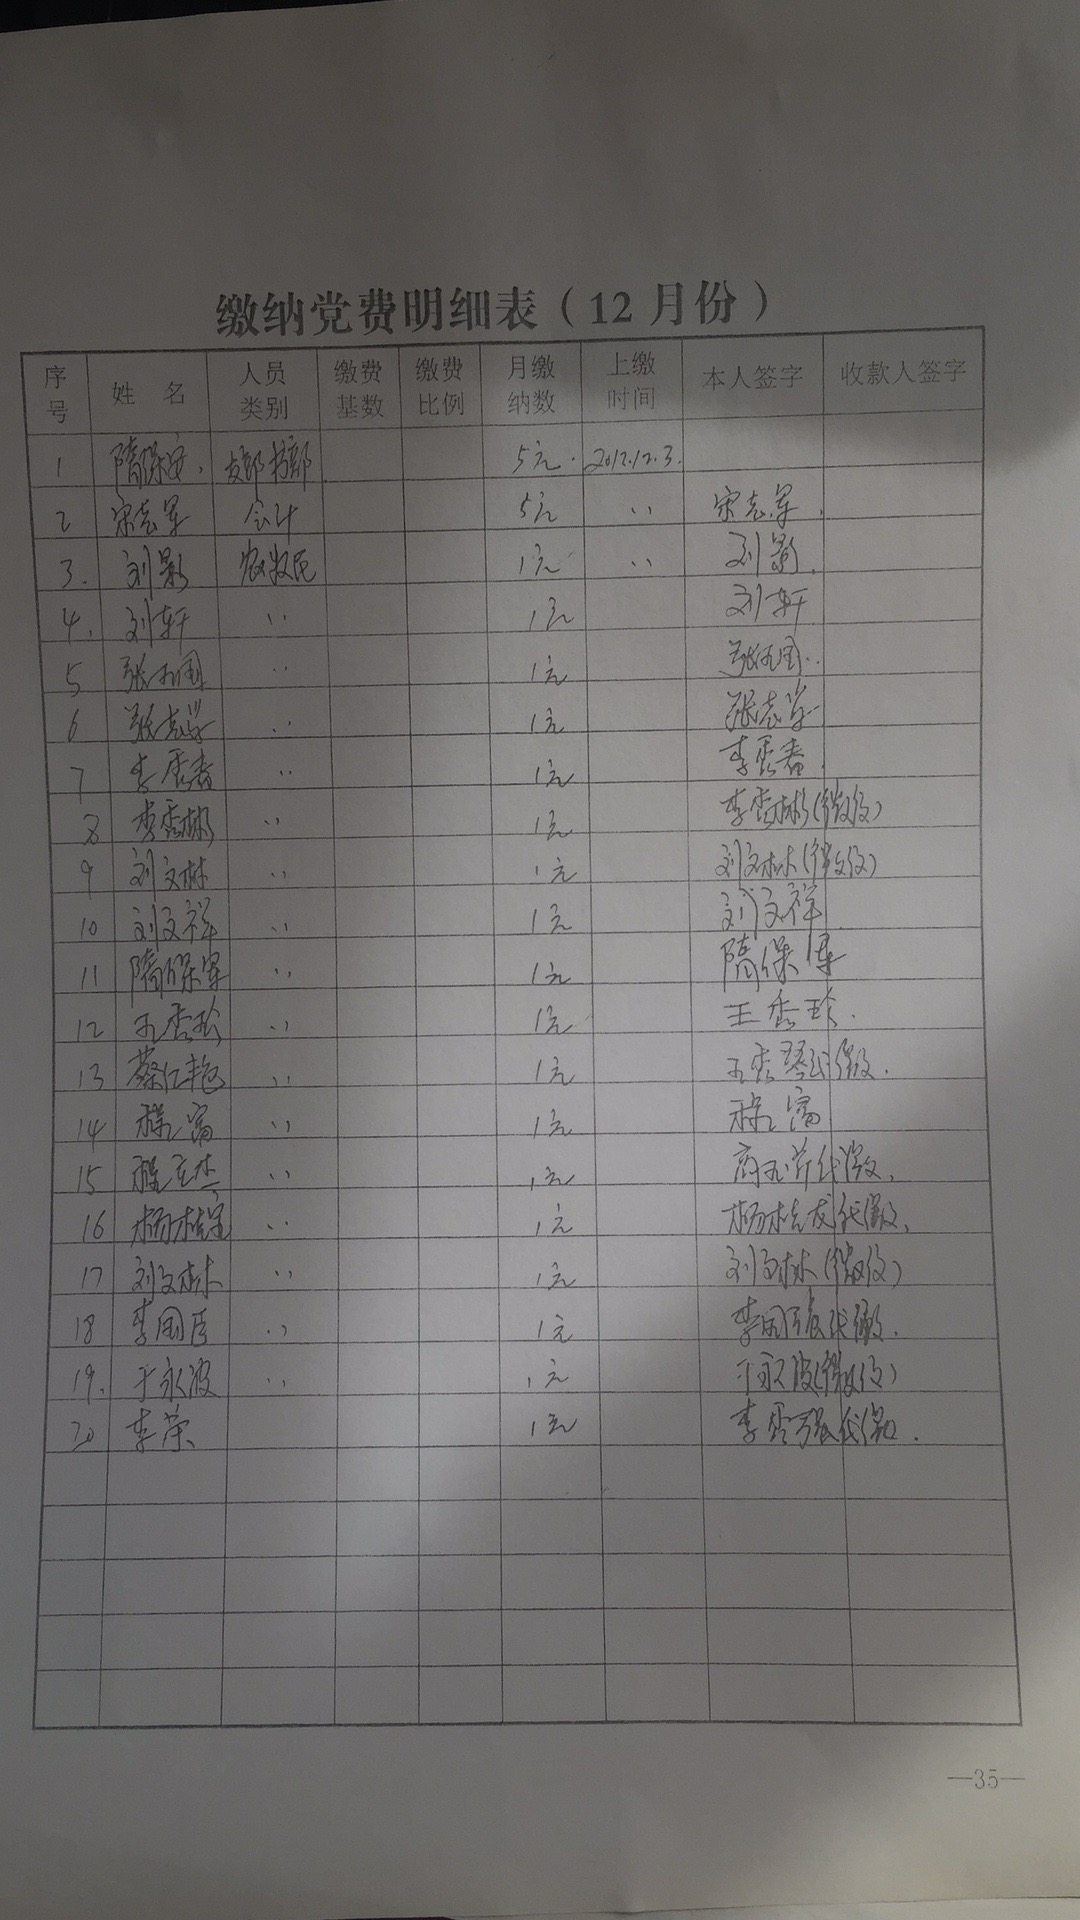 缴纳党费明细表（12月份）
序号 姓名 人员类别 缴费基数 缴费比例 月缴纳数 上缴时间 本人签字 收款人签字
1 隋保安 支部书记 5元 2017.12.3.
2 宋志军 会计 5元 〃 宋志军
3. 刘影 农牧民 1元 〃 刘影
4. 刘轩 〃 1元 刘轩
5 张玉国 〃 1元 张玉国
6 张志学 〃 1元 张志学
7 李秀春 〃 1元 李秀春
8 李秀彬 〃 1元 李秀彬(微信)
9 刘文林 〃 1元 刘文林(微信)
10 刘文祥 〃 1元 刘文祥
11 隋保军 〃 1元 隋保军
12 王秀珍 〃 1元 王秀珍
13 蔡仁艳 〃 1元 王秀琴代缴
14 富 〃 1元 富
15 〃 1元 代缴
16 杨桂宝 〃 1元 杨桂友代缴
17 刘文林 〃 1元 刘文林(微信)
18 李国臣 〃 1元 李国强代缴
19. 于永波 〃 1元 于永波(微信)
20 李荣 1元 李秀强代缴
—35—